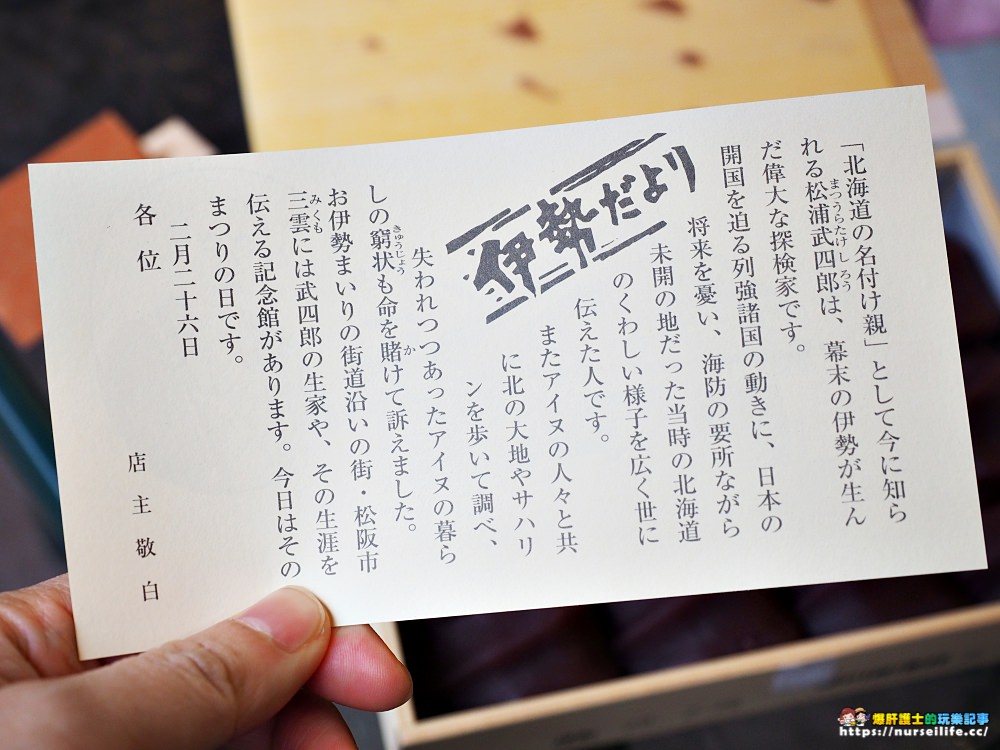 「北海道の名付け親」として今に知ら
れる松浦武四郎は、幕末の伊勢が生ん
まつうらたけしろう
だ偉大な探検家です。
開国を迫る列強諸国の動きに、日本の
将来を憂い、海防の要所ながら
未開の地だった当時の北海道
のくわしい様子を広く世に
伝えた人です。
またアイヌの人々と共
に北の大地やサハリ
ンを歩いて調べ、
失われつつあったアイヌの暮ら
しの窮状も命を賭けて訴えました。
きゅうじょう
か
お伊勢まいりの街道沿いの街・松阪市
三雲には武四郎の生家や、その生涯を
みくも
伝える記念館があります。今日はその
まつりの日です。
二月二十六日
各位
店主敬白
伊勢だより
爆肝護士的玩樂記事
https://nurseilife.cc/